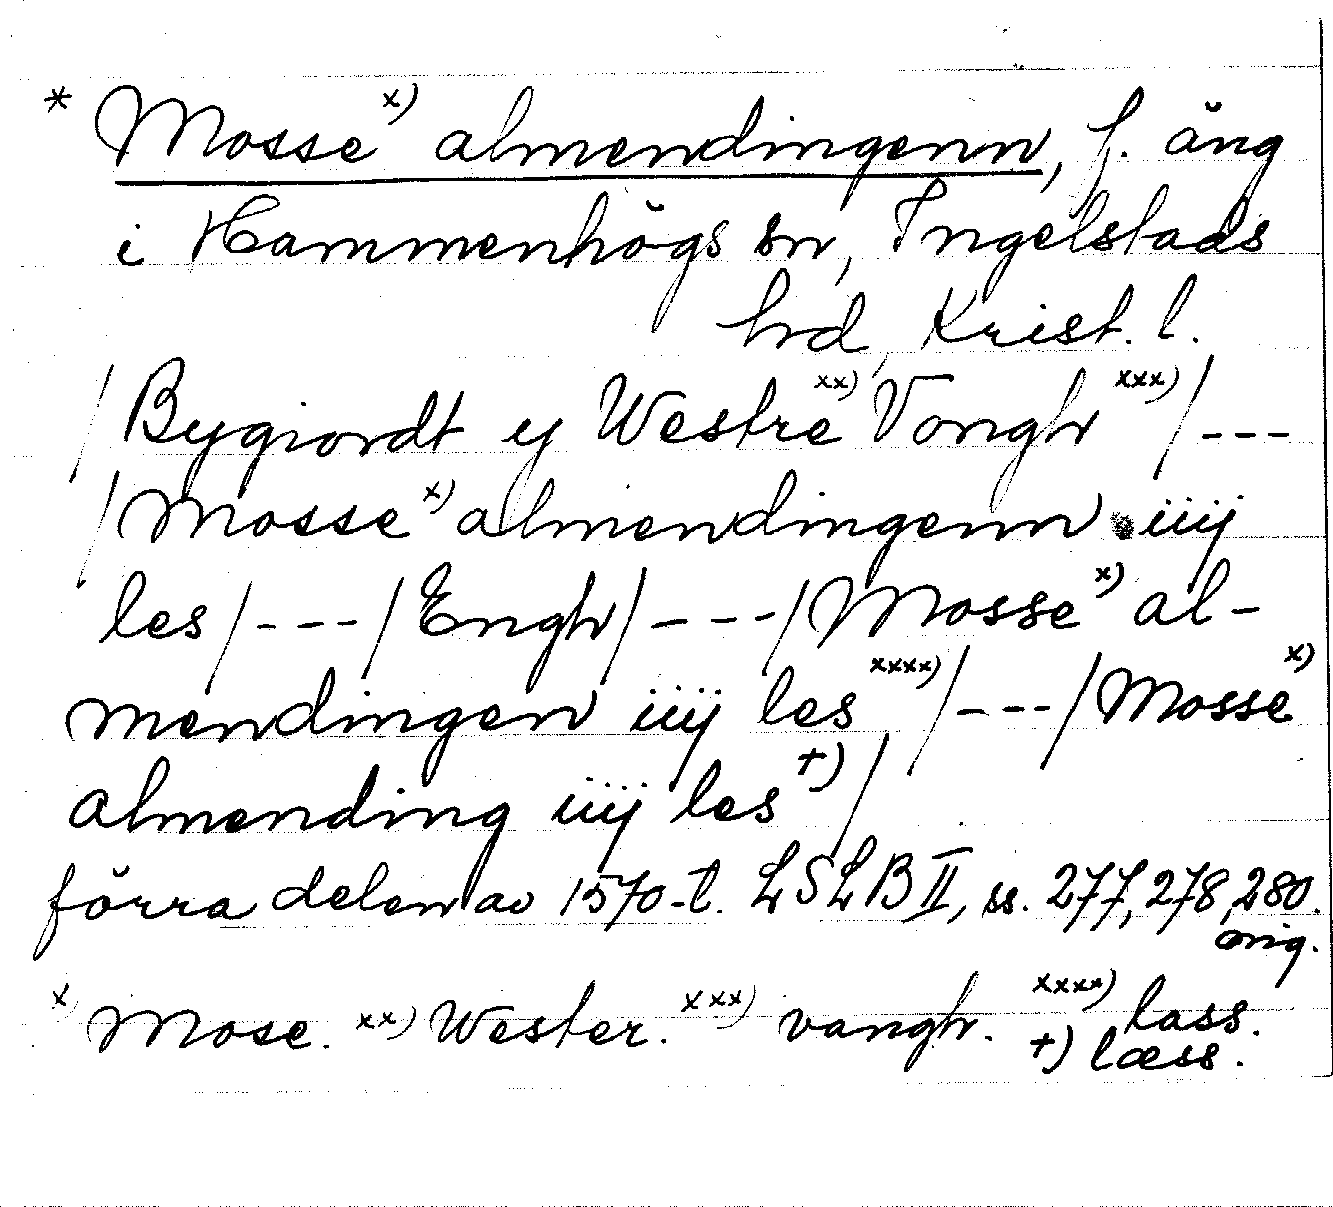 * Mosse x) almendingenn, f. äng
i Hammenhögs sn, Ingelstads
hd, Krist. l.
/Bygiordt y Westre xx) Vongh xxx)/---
/Mosse x) almendingenn iiij
les/---/Engh/---/Mosse x) al-
mendingen iiij les xxxx)/---/Mosse x)
almending iiij les +)/
förra delen av 1570-t. LSLB II, ss. 277, 278, 280.
orig.
x) Mose. xx) Wester. xxx) vangh. xxxx) lass.
+) læss.